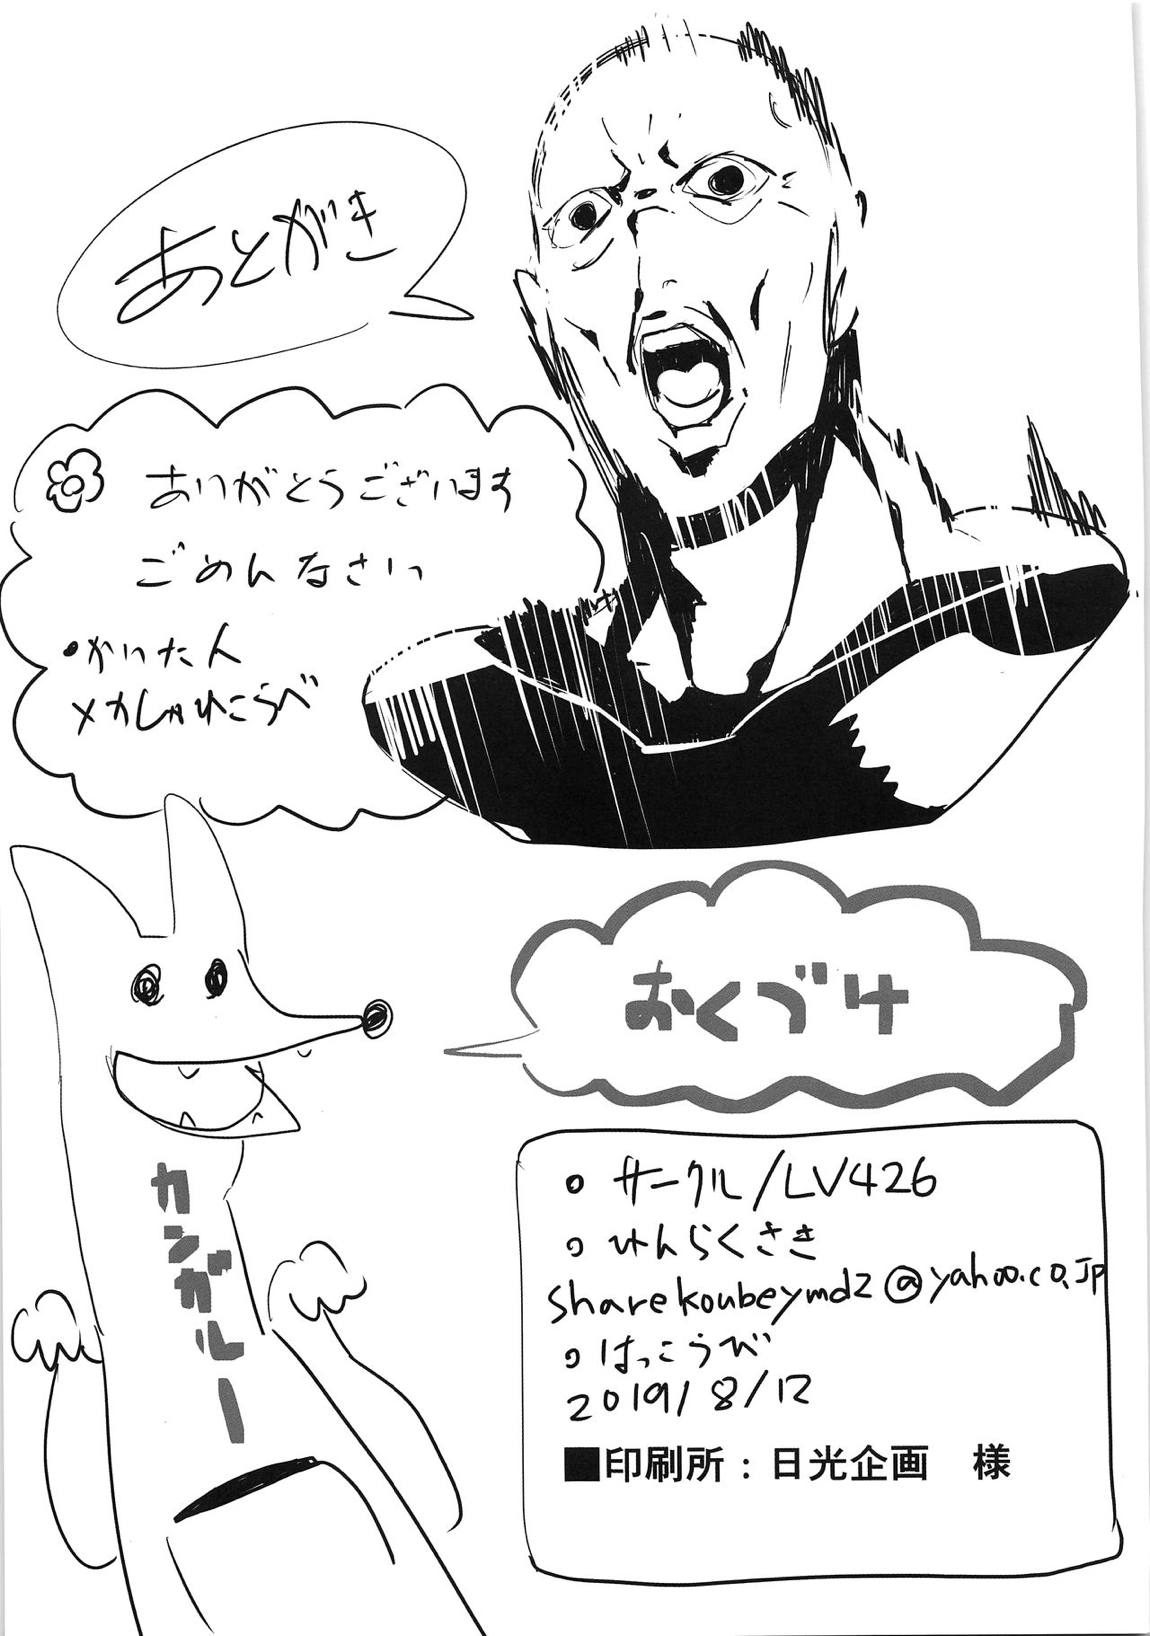 あとがき
ありがとうございます
ごめんなさい
・かいた人
メカしゃれこうべ
おくづけ
カンガルー
○ サークル/LV426
○ れんらくさき
sharekoubeymd2@yahoo.co.jp
○ はっこうび
2019/8/12
■印刷所：日光企画　様